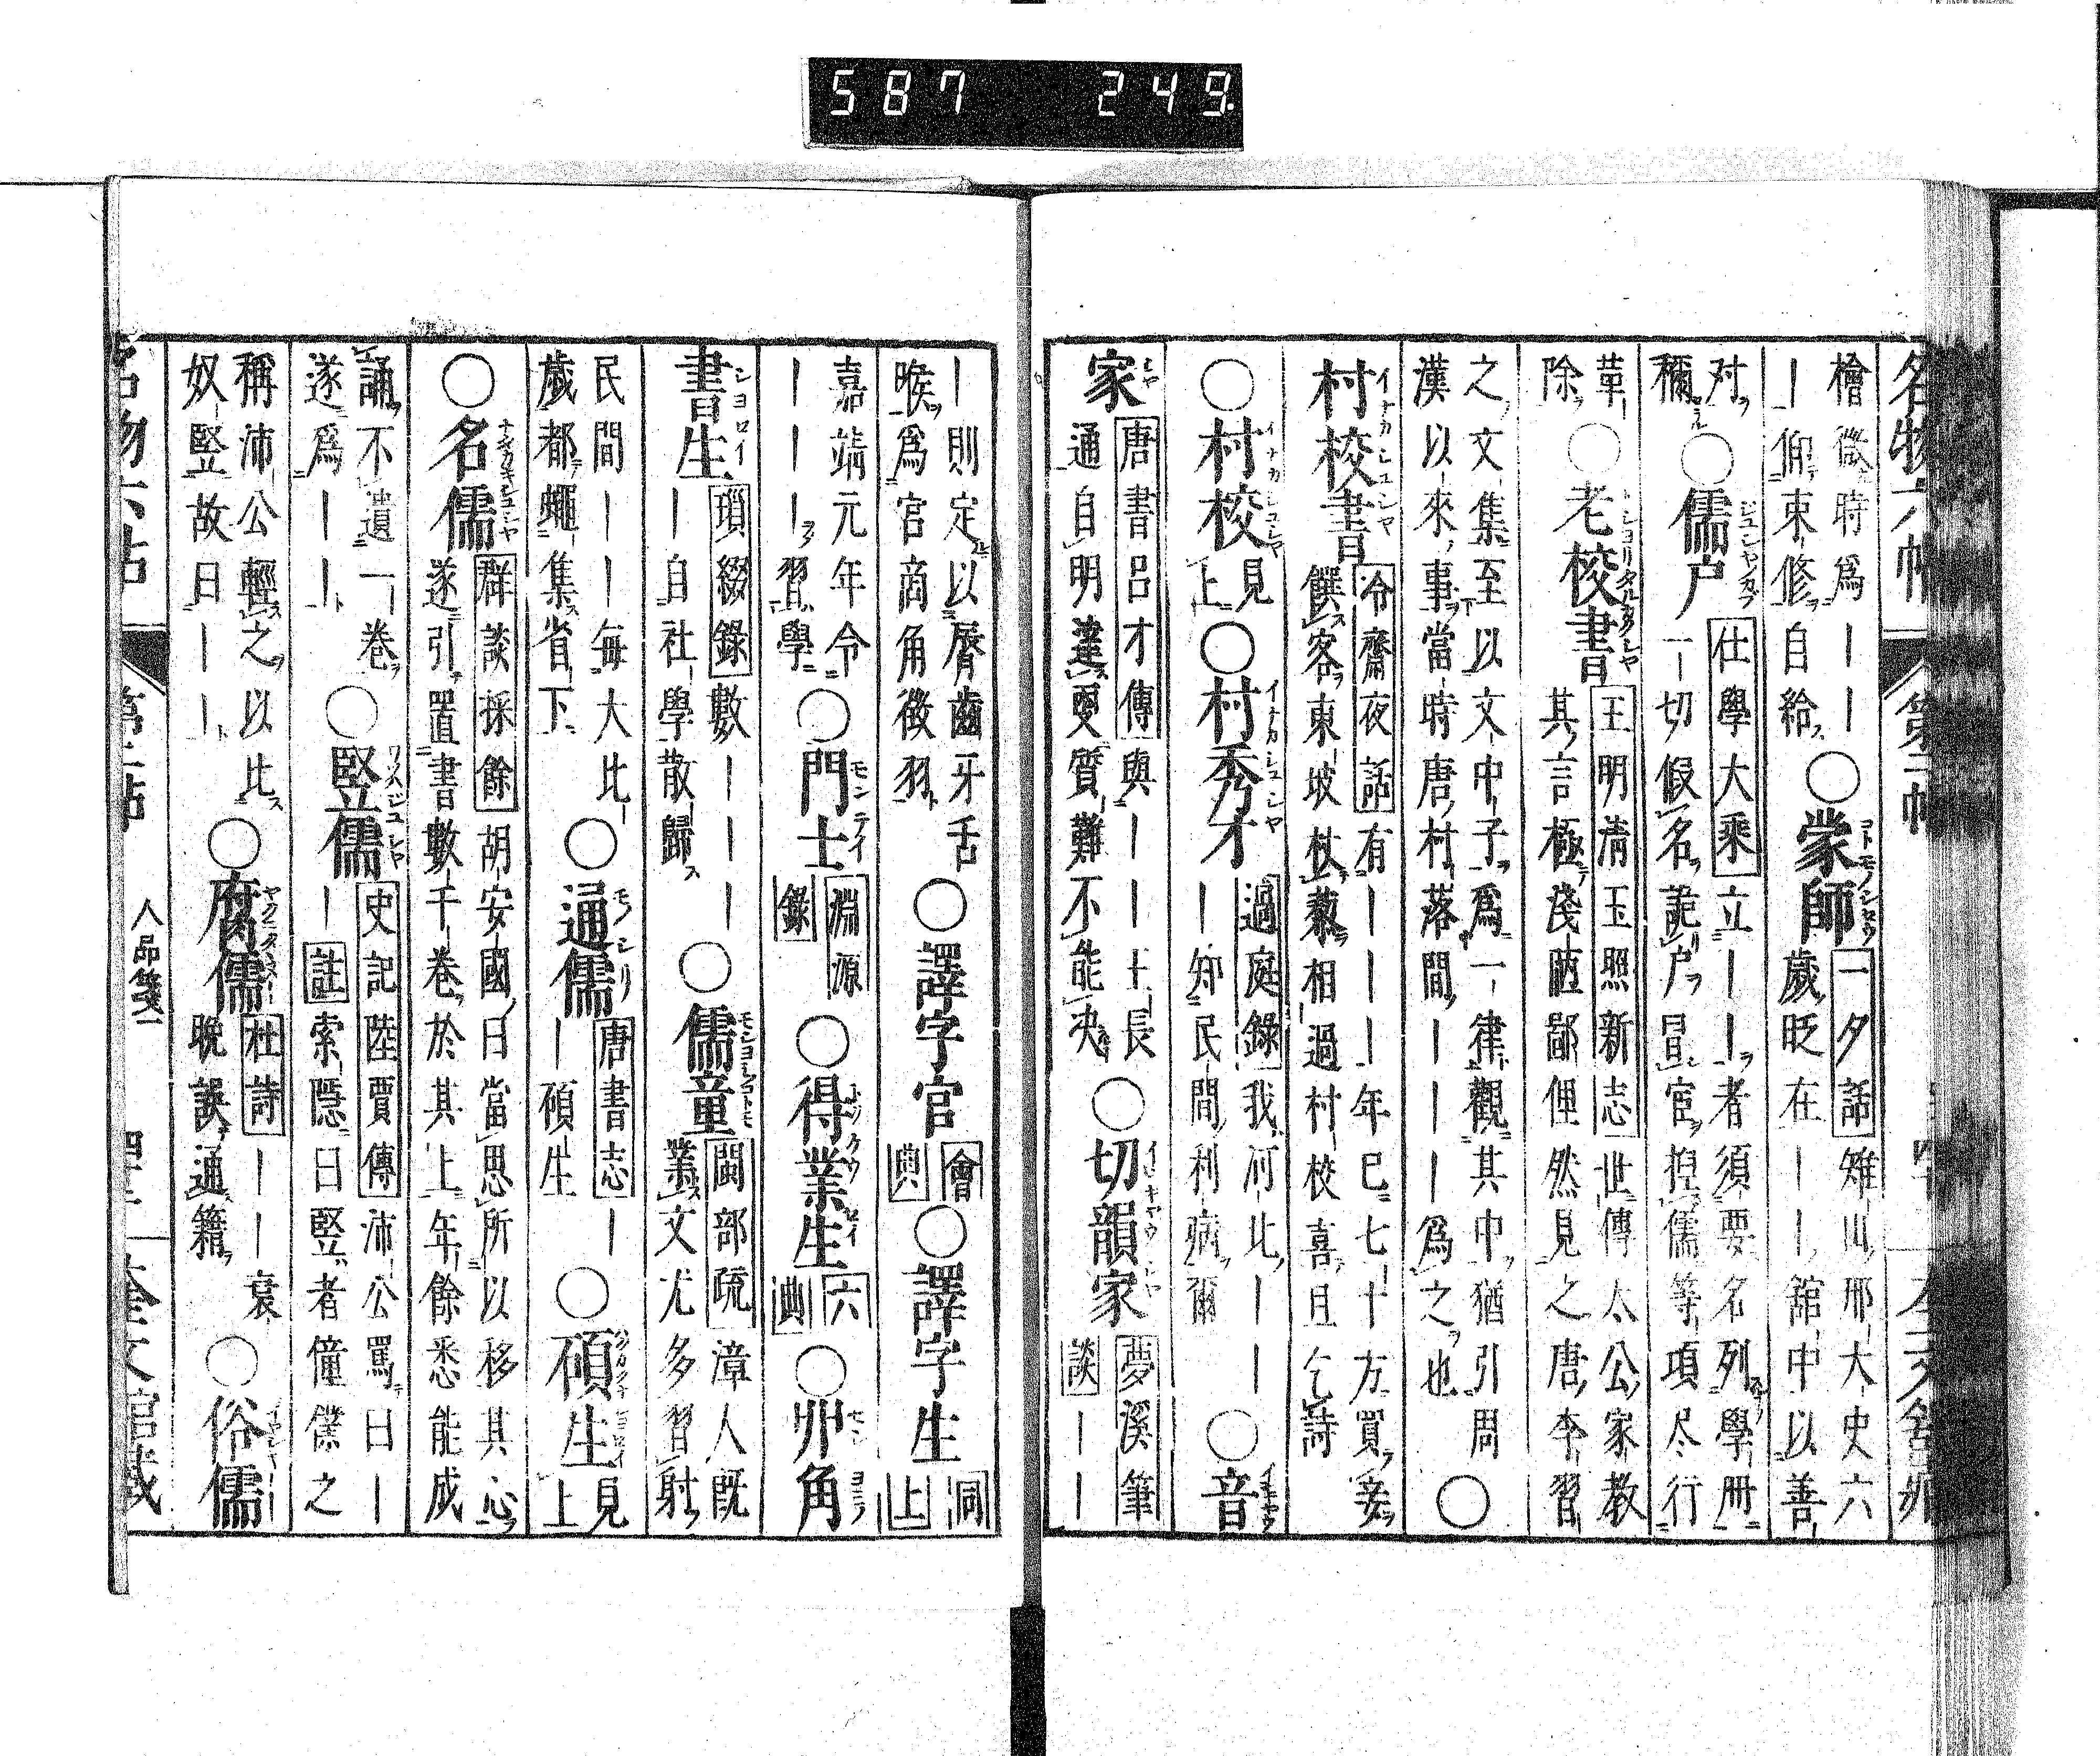 587 249
名物六帖
第二帖
檜微時爲｜｜｜
｜仰束修自給
○蒙師
一夕話雉山邢大史六
歲貶在｜｜館中以善
対
穪
○儒户
仕學大乘立｜｜者須要名列學册
一切假名詭户冒宦捏儒等項尽行
革
除
○老校書
王明清玉照新志世傳太公家教
其言極淺陋鄙俚然見之唐李習
之文集至以文中子爲一律觀其中猶引周
漢以來事當時唐村落間｜｜｜爲之也
○
村校書
冷齋夜話有｜｜｜年已七十方買妾
饌客東坡杖藜相過村校喜且乞詩
○村校
見
上
○村秀才
過庭錄我河北｜｜
｜知民間利病爾
○音
家
唐書呂才傳與｜｜士長
通自明達更質難不能决
○切韻家
夢溪筆
談｜｜
｜則定以脣齒牙舌
㬋爲宮商角徴羽
○譯字官
會
典
○譯字生
洞
上
嘉靖元年令
｜｜｜習學
○門士
淵源
錄
○得業生
六
典
○丱角
書生
瑣綴錄數｜｜｜
｜自社學散歸
○儒童
閩部疏漳人旣
業文尤多習射
民間｜｜｜每大比
歲都蠅集省下
○通儒
唐書志｜
｜碩生
○碩生
見
上
○名儒
群談採餘胡安國曰當思所以移其心
遂引置書數千卷於其上年餘悉能成
誦不遺一卷
遂爲｜｜
○竪儒
史記陸賈傳沛公罵曰｜
｜註索隱曰竪者僮僕之
稱沛公輕之以比
奴竪故曰｜｜
○腐儒
杜詩｜｜衰
晩誤通籍
○俗儒
人品箋一